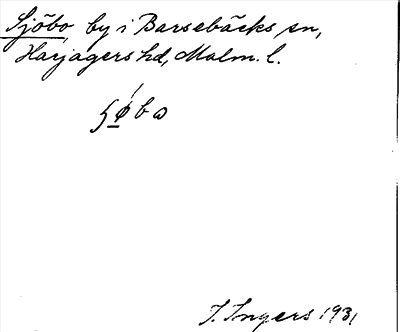 Sjöbo by i Barsebäcks sn,
Harjagers hd, Malm. l.
I. Ingers 1931